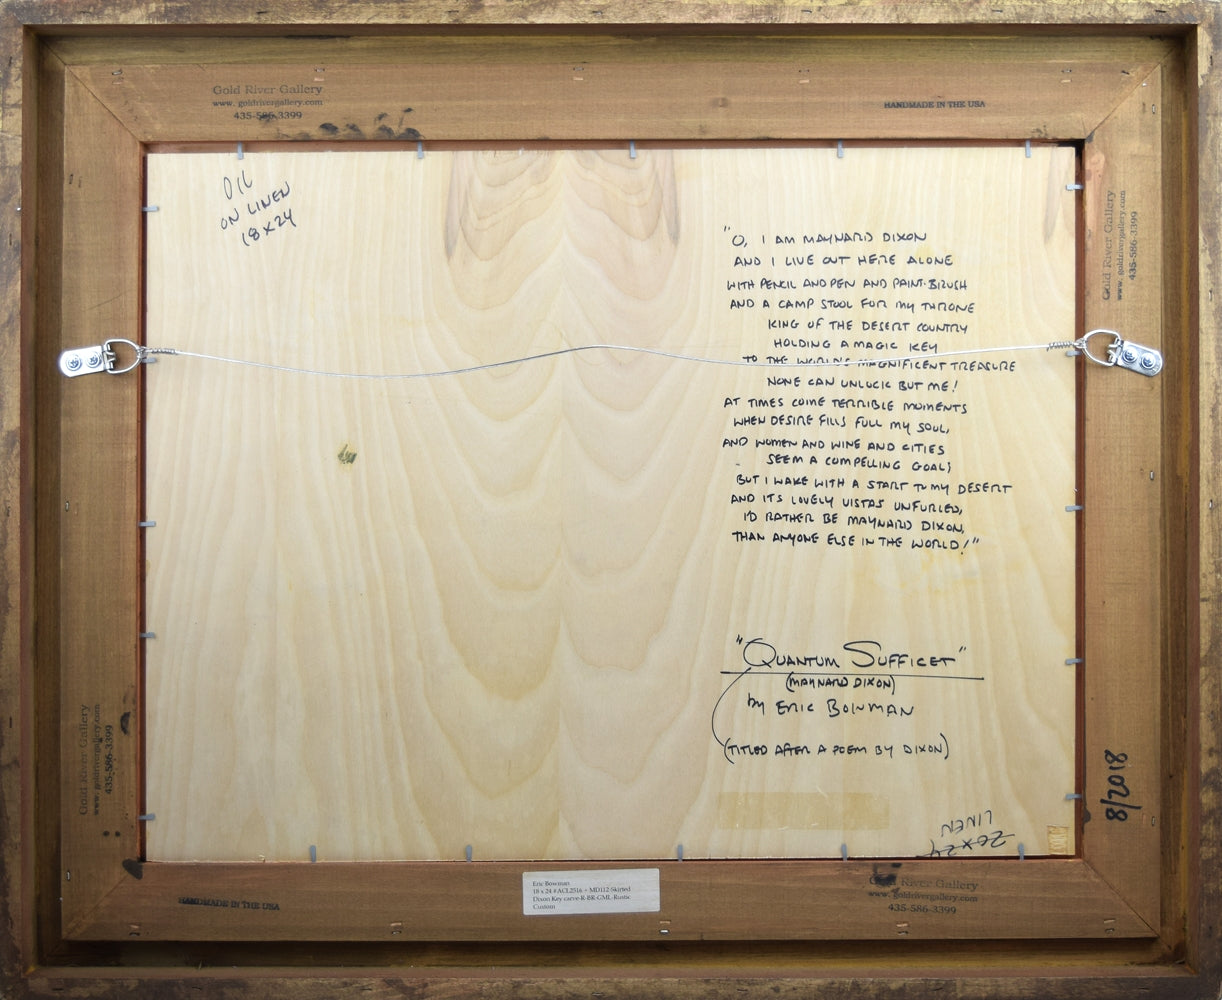 Gold River Gallery
www.goldrivergallery.com
435-586-3399
HANDMADE IN THE USA
OIL
ON LINEN
18X24
"O, I AM MAYNARD DIXON
AND I LIVE OUT HERE ALONE
WITH PENCIL AND PEN AND PAINT-BRUSH
AND A CAMP STOOL FOR MY THRONE
KING OF THE DESERT COUNTRY
HOLDING A MAGIC KEY
TO THE WORLD'S MAGNIFICENT TREASURE
NONE CAN UNLOCK BUT ME!
AT TIMES COME TERRIBLE MOMENTS
WHEN DESIRE FILLS FULL MY SOUL,
AND WOMEN AND WINE AND CITIES
SEEM A COMPELLING GOAL;
BUT I WAKE WITH A START TO MY DESERT
AND ITS LOVELY VISTAS UNFURLED,
I'D RATHER BE MAYNARD DIXON,
THAN ANYONE ELSE IN THE WORLD!"
Gold River Gallery
www.goldrivergallery.com
435-586-3399
"QUANTUM SUFFICET"
(MAYNARD DIXON)
by ERIC BOWMAN
(TITLED AFTER A POEM BY DIXON)
Gold River Gallery
www.goldrivergallery.com
435-586-3399
LINEN
20x24
Eric Bowman
18 x 24 #ACL2516 - MD112-Skirted
Dixon Key carve-R-BR-GML-Rustic
Custom
HANDMADE IN THE USA
Gold River Gallery
www.goldrivergallery.com
435-586-3399